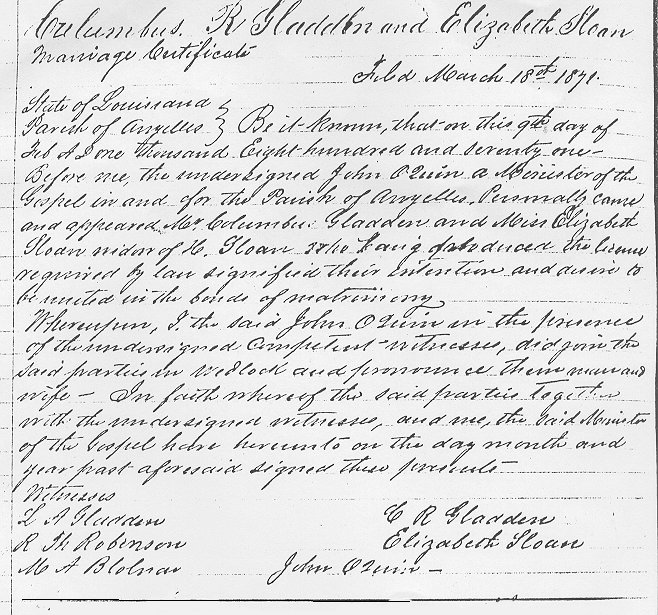 Columbus. R Gladden and Elizabeth Sloan
Marriage Certificate
Filed March 18th 1871.
State of Louisiana
Parish of Avoyelles } Be it known, that on this 9th day of
Feb A D one Thousand Eight hundred and seventy one –
Before me, the undersigned John O Quin a Minister of the
Gospel in and for the Parish of Avoyelles, Personally came
and appeared Mr Columbus Gladden and Miss Elizabeth
Sloan widow of H. Sloan who having produced the license
required by law signified their intention and desire to
be united in the bonds of matrimony
Whereupon, I the said John O Quin in the presence
of the undersigned Competent witnesses, did join the
said parties in wedlock and pronounce them man and
wife – In faith whereof the said parties together
with the undersigned witnesses, and me, the said Minister
of the Gospel have hereunto on the day month and
year past aforesaid signed these presents
Witnesses
L A Gladden
C R Gladden
R Robenson
Elizabeth Sloan
M A
John O Quin –